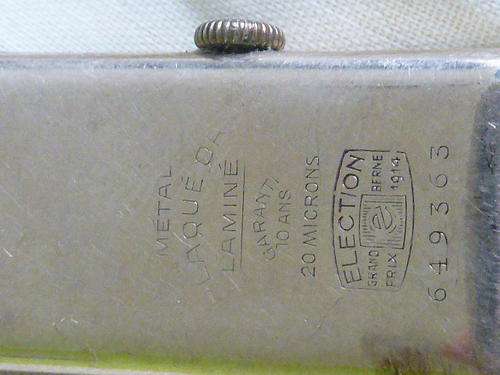 METAL
LAQUÉ OR
LAMINÉ
GARANTI
10 ANS
20 MICRONS
ELECTION
GRAND
PRIX
BERNE
1914
649363